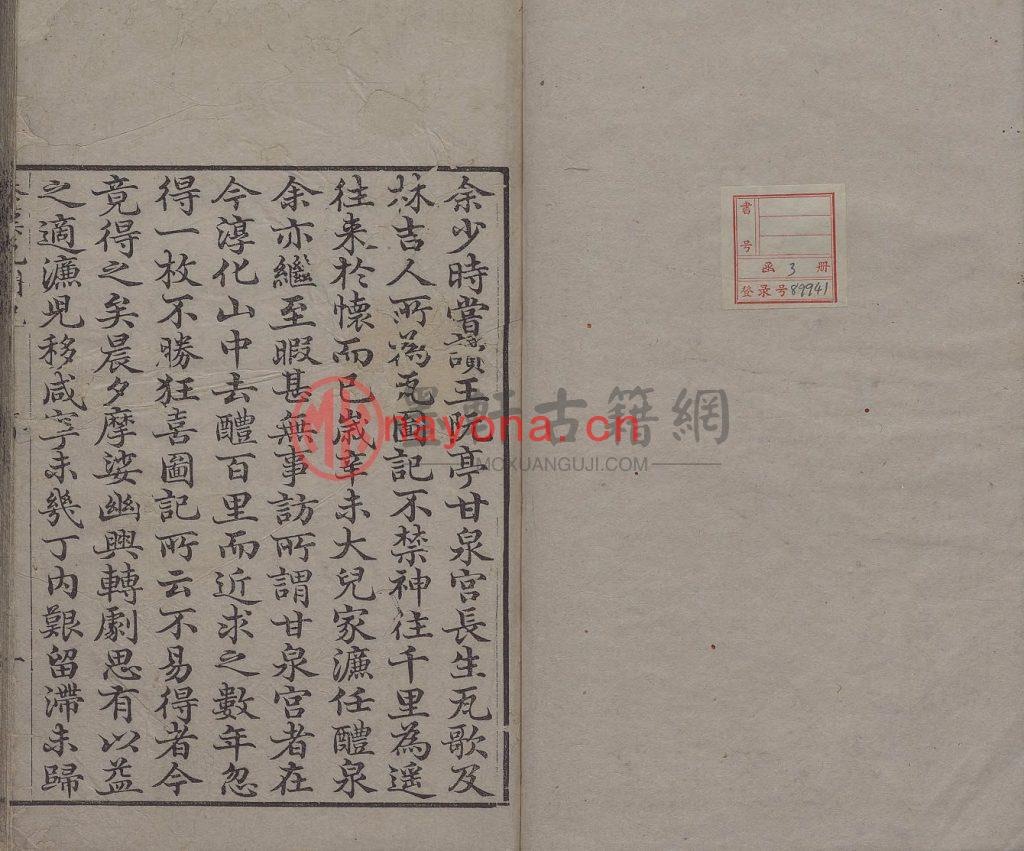 余少時嘗讀王阮亭甘泉宮長生瓦歌及
林吉人所為瓦圖記不禁神往千里為遥
往来於懷而已歲辛未大兒家㢘任醴泉
余亦繼至暇甚無事訪所謂甘泉宮者在
今淳化山中去醴百里而近求之數年忽
得一枚不勝狂喜圖記所云不易得者今
竟得之矣晨夕摩娑幽興轉劇思有以益
之適㢘児移咸寧未幾丁内艱留滯未歸
書号
函 3 册
登录号89941
墨軒古籍網
nayona.cn
MOXUANGUJI.COM